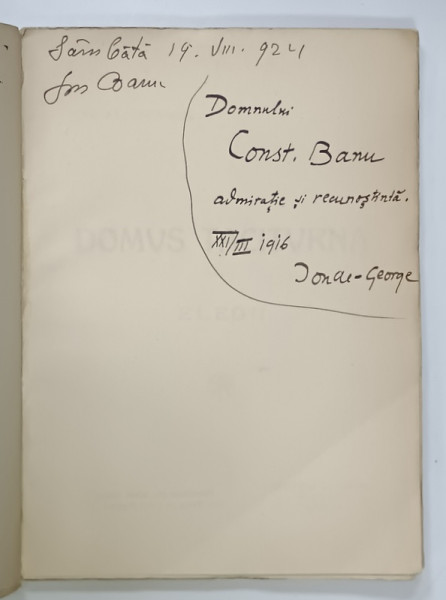 Sâmbătă 19. VIII. 924
Banu
Domnului
Const. Banu
admirație și recunoștință.
XXI/III 1916
George
DOMVS